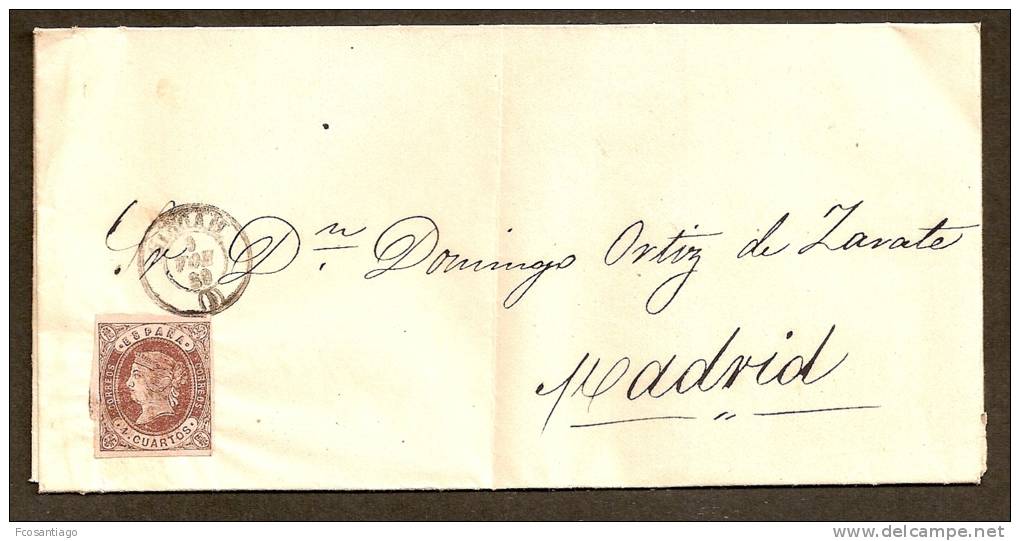 Sr Dn. Domingo Ortiz de Zarate
Madrid
ESPAÑA
CORREOS
CORREOS
4 CUARTOS
Fcosantiago
www.delcampe.net